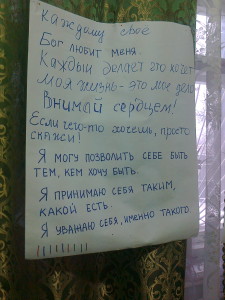 Каждому своё
Бог любит меня
Каждый делает что хочет
Моя жизнь - это моё дело
Внимай сердцем!
Если чего-то хочешь, просто
скажи!
Я могу позволить себе быть
тем, кем хочу быть.
Я принимаю себя таким,
какой есть.
Я уважаю себя, именно такого
!!!!!!!!!